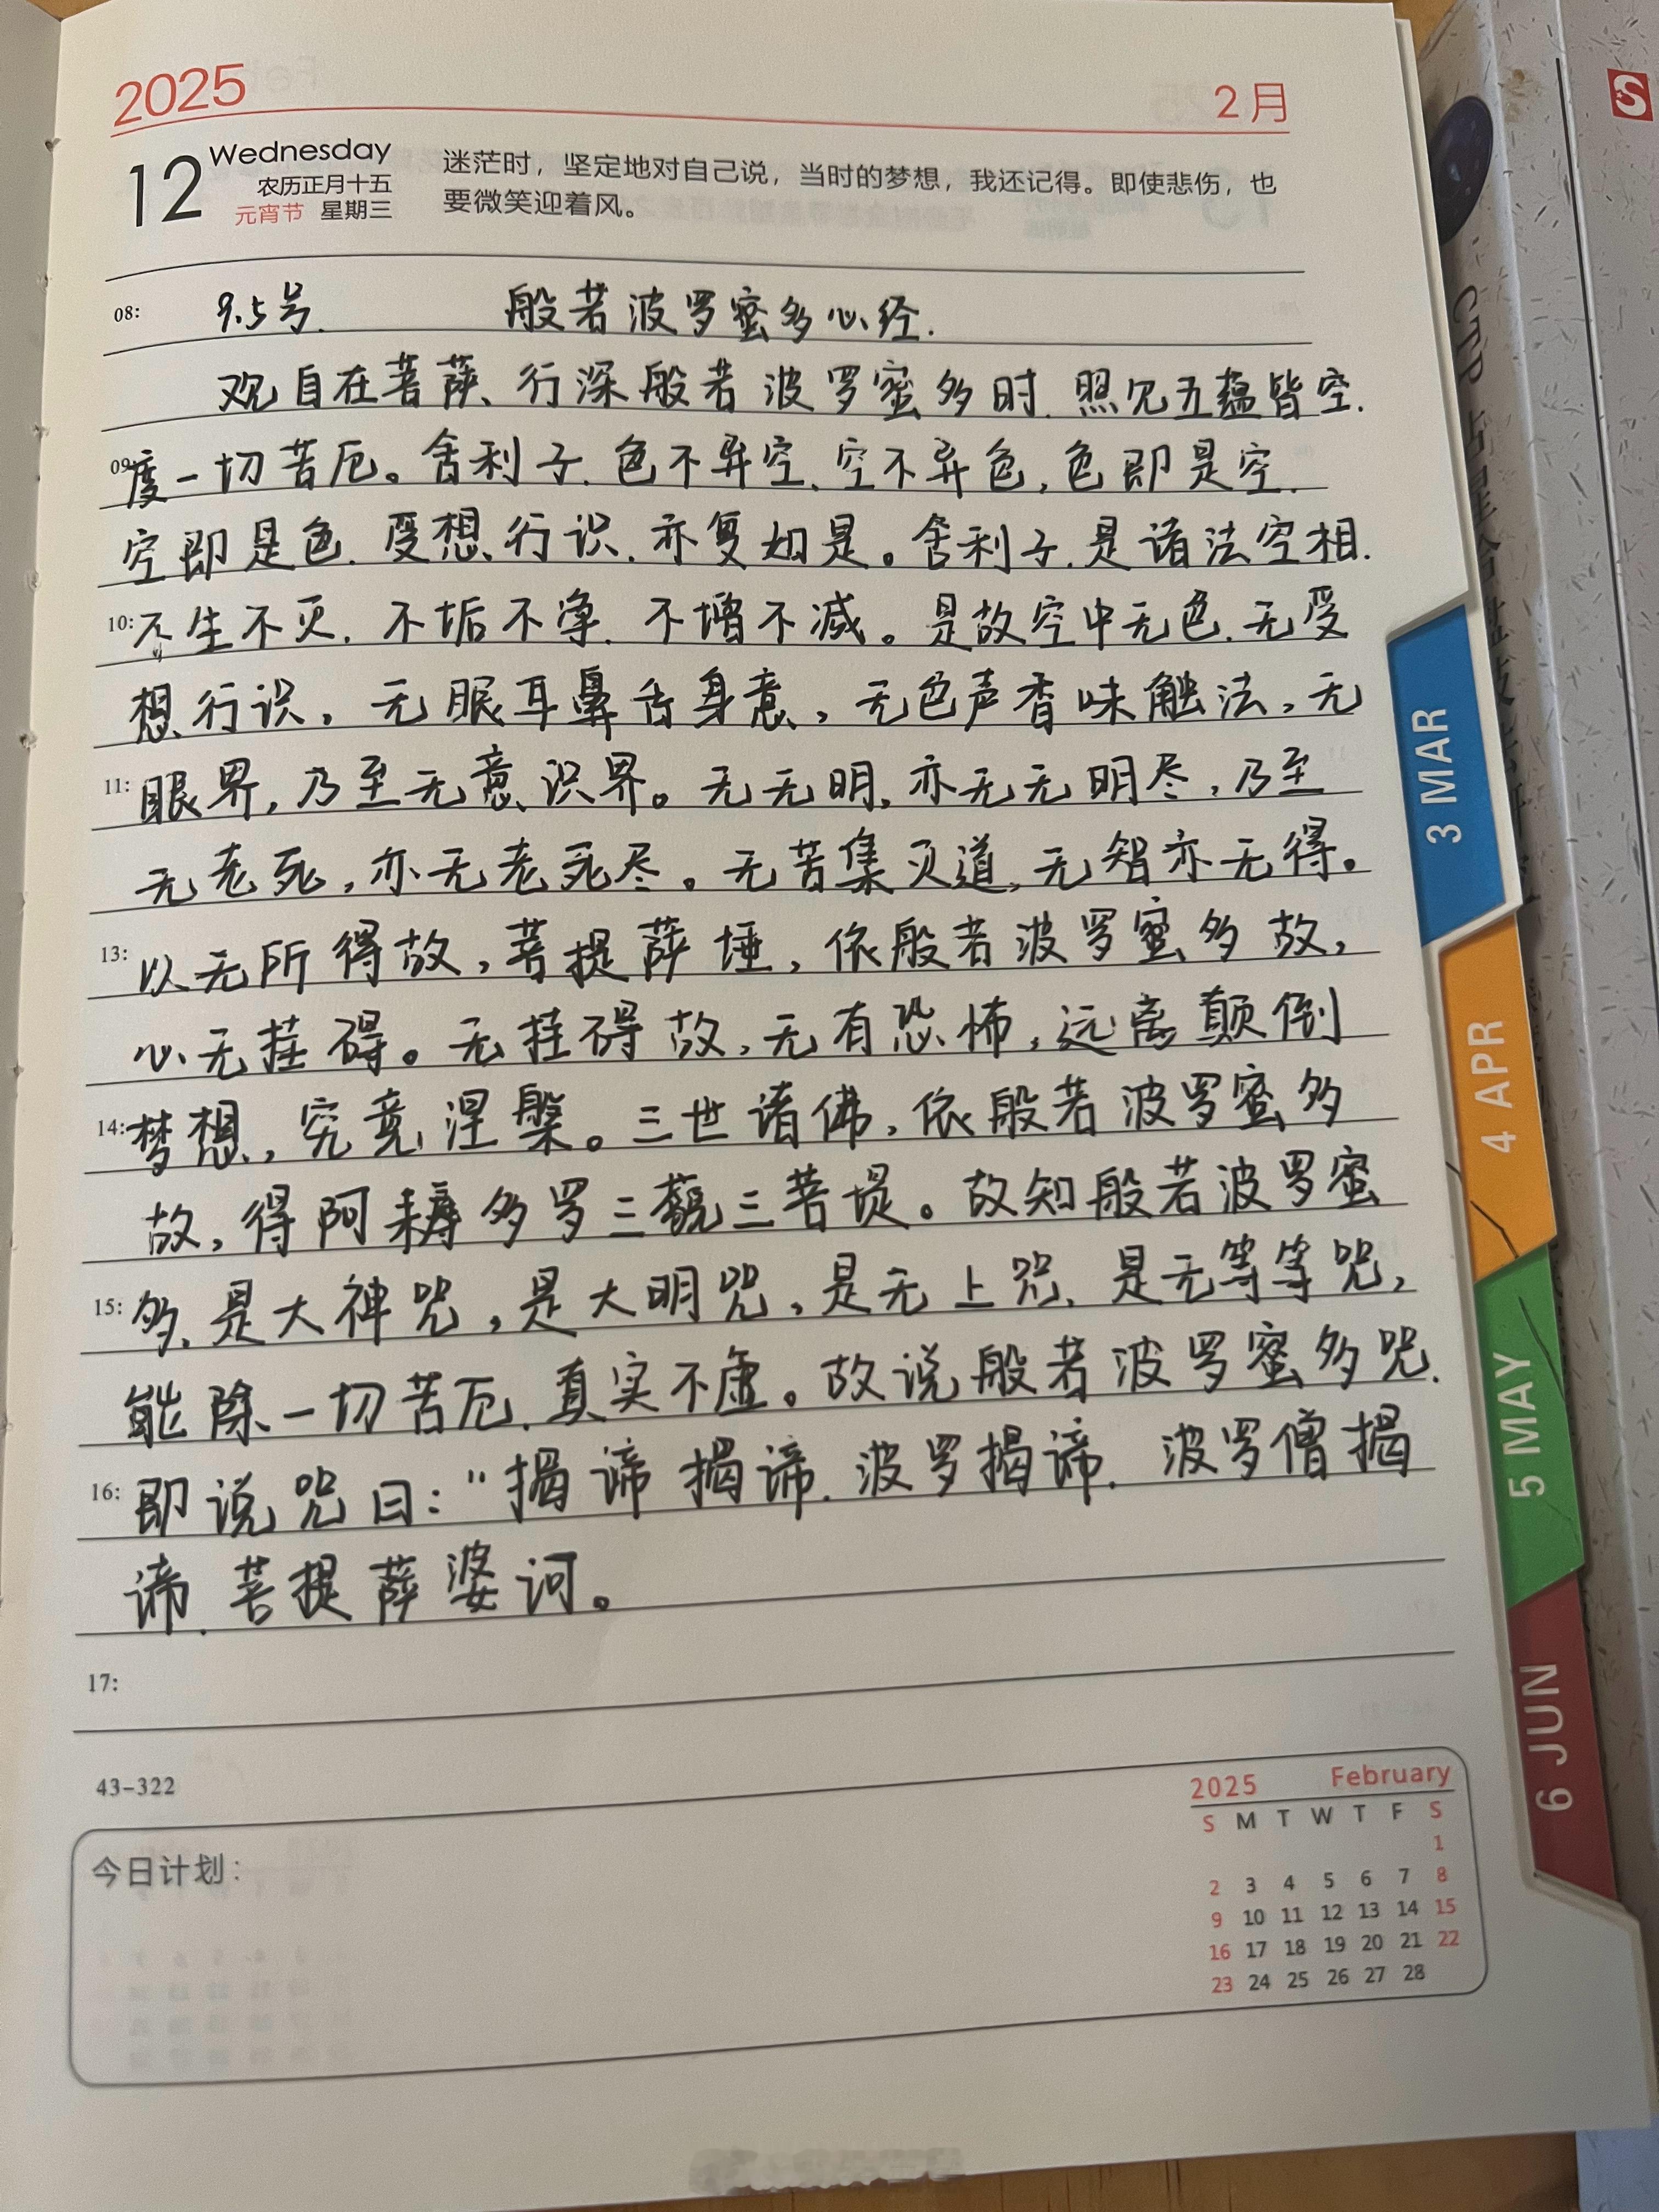 2025
2月
12
Wednesday
农历正月十五
元宵节 星期三
迷茫时，坚定地对自己说，当时的梦想，我还记得。即使悲伤，也
要微笑迎着风。
08: 9.5号. 般若波罗蜜多心经.
观自在菩萨、行深般若波罗蜜多时.照见五蕴皆空.
09: 度一切苦厄。舍利子.色不异空、空不异色,色即是空.
空即是色.受想行识.亦复如是。舍利子.是诸法空相.
10: 不生不灭.不垢不净.不增不减。是故空中无色.无受
想行识,无眼耳鼻舌身意,无色声香味触法,无
11: 眼界,乃至无意识界。无无明,亦无无明尽,乃至
无老死,亦无老死尽。无苦集灭道,无智亦无得。
13: 以无所得故,菩提萨埵,依般若波罗蜜多故,
心无挂碍。无挂碍故,无有恐怖,远离颠倒
14: 梦想,究竟涅槃。三世诸佛,依般若波罗蜜多
故,得阿耨多罗三藐三菩提。故知般若波罗蜜
15: 多、是大神咒,是大明咒,是无上咒、是无等等咒,
能除一切苦厄.真实不虚。故说般若波罗蜜多咒.
16: 即说咒曰:"揭谛揭谛.波罗揭谛.波罗僧揭
谛.菩提萨婆诃。
17:
43-322
今日计划:
2025 February
S M T W T F S
1
2 3 4 5 6 7 8
9 10 11 12 13 14 15
16 17 18 19 20 21 22
23 24 25 26 27 28
3 MAR
4 APR
5 MAY
6 JUN
S
CTP